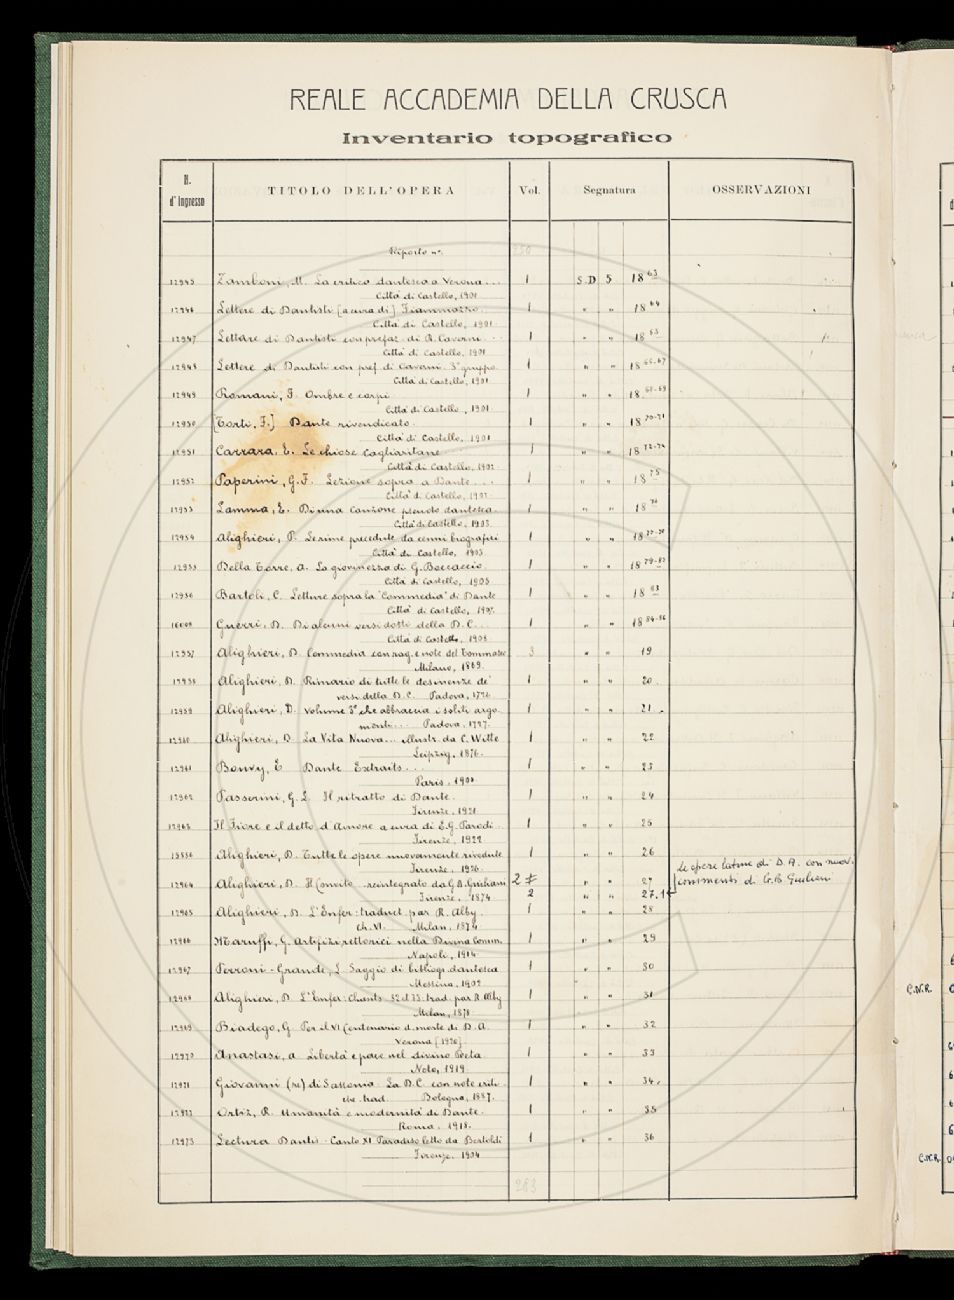 REALE ACCADEMIA DELLA CRUSCA
Inventario topografico
N. d'Ingresso TITOLO DELL'OPERA Vol. Segnatura OSSERVAZIONI
Riporto n°. 250
12945 Zamboni, M. La critica dantesca a Verona... 1 S.D 5 18 63
Città di Castello, 1901
12946 Lettere di Dantisti [a cura di] Fiammazzo. 1 " " 18 64
Città di Castello, 1901
12947 Lettere di Dantisti con prefaz. di R. Caverni... 1 " " 18 65
Città di Castello, 1901
12948 Lettere di Dantisti con pref. di Caverni. 3° gruppo 1 " " 18 66-67
Città di Castello, 1901
12949 Romani, F. Ombre e corpi 1 " " 18 68-69
Città di Castello, 1901
12950 [Torti, F.] Dante rivendicato. 1 " " 18 70-71
Città di Castello, 1901
12951 Carrara, E. Le chiose Cagliaritane 1 " " 18 72-74
Città di Castello, 1902
12952 Paperini, G.F. Lezione sopra a Dante... 1 " " 18 75
Città di Castello, 1902.
12953 Lamma, E. Di una canzone pseudo dantesca. 1 " " 18 76
Città di Castello, 1903.
12954 Alighieri, P. Le rime precedute da cenni biografici 1 " " 18 77-78
Città di Castello, 1903.
12955 Della Torre, A. La giovinezza di G. Boccaccio. 1 " " 18 79-82
Città di Castello, 1905
12956 Bartoli, C. Letture sopra la "Commedia" di Dante 1 " " 18 83
Città di Castello, 1907.
16608 Guerri, D. Di alcuni versi dotti della D.C... 1 " " 18 84-86
Città di Castello, 1908.
12957 Alighieri, D. Commedia con rag. e note del Tommaseo 3 " " 19
Milano, 1869.
12958 Alighieri, D. Rimario di tutte le desinenze de' 1 " " 20.
versi della D.C. Padova, 1726
12959 Alighieri, D. Volume 3° che abbraccia i soliti argo- 1 " " 21.
menti... Padova, 1727.
12960 Alighieri, D La Vita Nuova... illustr. da C. Witte 1 " " 22
Leipzig, 1876.
12961 Bouvy, E Dante Extraits... 1 " " 23
Paris, 1900
12962 Passerini, G.L. Il ritratto di Dante. 1 " " 24
Firenze, 1921
12963 Il Fiore e il detto d'Amore a cura di E.G. Parodi. 1 " " 25
Firenze, 1922
15856 Alighieri, D. Tutte le opere nuovamente rivedute 1 " " 26
Firenze, 1926.
Le opere latine di D. A. con nuovi
12964 Alighieri, D. Il Convito reintegrato da G.B. Giuliani 2 " " 27 commenti di G.B. Giuliani
Firenze, 1874 2 " " 27.1
12965 Alighieri, D. L'Enfer: traduct. par R. Alby. 1 " " 28
ch. VI. Milan, 1874
12966 Maruffi, G. Artifizi rettorici nella Divina Comm. 1 " " 29
Napoli, 1914.
12967 Perroni-Grande, L Saggio di bibliogr. dantesca 1 " " 30
Messina, 1902
12968 Alighieri, D L'Enfer: Chants 32 et 33. trad. par R. Alby 1 " " 31
Milan, 1878
12969 Biadego, G. Per il VI Centenario d. morte di D. A. 1 " " 32
Verona [1920].
12970 Anastasi, A Libertà e pace nel divino Poeta 1 " " 33
Noto, 1919.
12971 Giovanni (re) di Sassonia. La D.C. con note criti- 1 " " 34.
che trad. Bologna, 1887.
12972 Ortiz, R. Umanità e modernità di Dante. 1 " " 35
Roma, 1918.
12973 Lectura Dantis. Canto XI Paradiso letto da Bertoldi 1 " " 36
Firenze, 1904
283
C.N.R.
C.N.R.